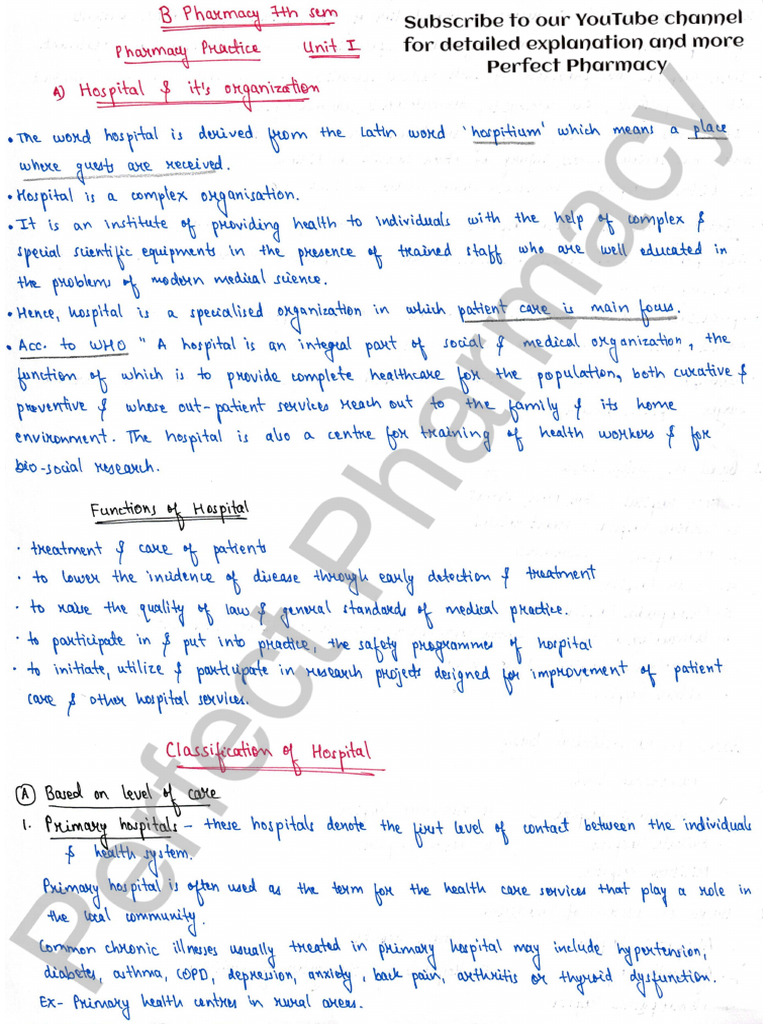 B Pharmacy 7th sem
Pharmacy Practice Unit I
A) Hospital & it's organization
Subscribe to our YouTube channel
for detailed explanation and more
Perfect Pharmacy
• The word hospital is derived from the Latin word 'hospitium' which means a place
where guests are received.
• Hospital is a complex organisation.
• It is an institute of providing health to individuals with the help of complex &
special scientific equipments in the presence of trained staff who are well educated in
the problems of modern medical science.
• Hence, hospital is a specialised organization in which patient care is main focus.
• Acc. to WHO " A hospital is an integral part of social & medical organization, the
function of which is to provide complete healthcare for the population, both curative &
preventive & whose out-patient services reach out to the family & its home
environment. The hospital is also a centre for training of health workers & for
bio-social research.
Functions of Hospital
• treatment & care of patients
• to lower the incidence of disease through early detection & treatment
• to raise the quality of law & general standards of medical practice.
• to participate in & put into practice, the safety programme of hospital
• to initiate, utilize & participate in research projects designed for improvement of patient
care & other hospital services.
Classification of Hospital
(A) Based on level of care
1. Primary hospitals - these hospitals denote the first level of contact between the individuals
& health system.
Primary hospital is often used as the term for the health care services that play a role in
the local community.
Common chronic illnesses usually treated in primary hospital may include hypertension,
diabetes, asthma, COPD, depression, anxiety, back pain, arthritis or thyroid dysfunction.
Ex- Primary health centres in rural areas.
Perfect Pharmacy